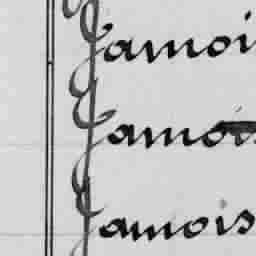 Jamoi
Jamois
Jamois